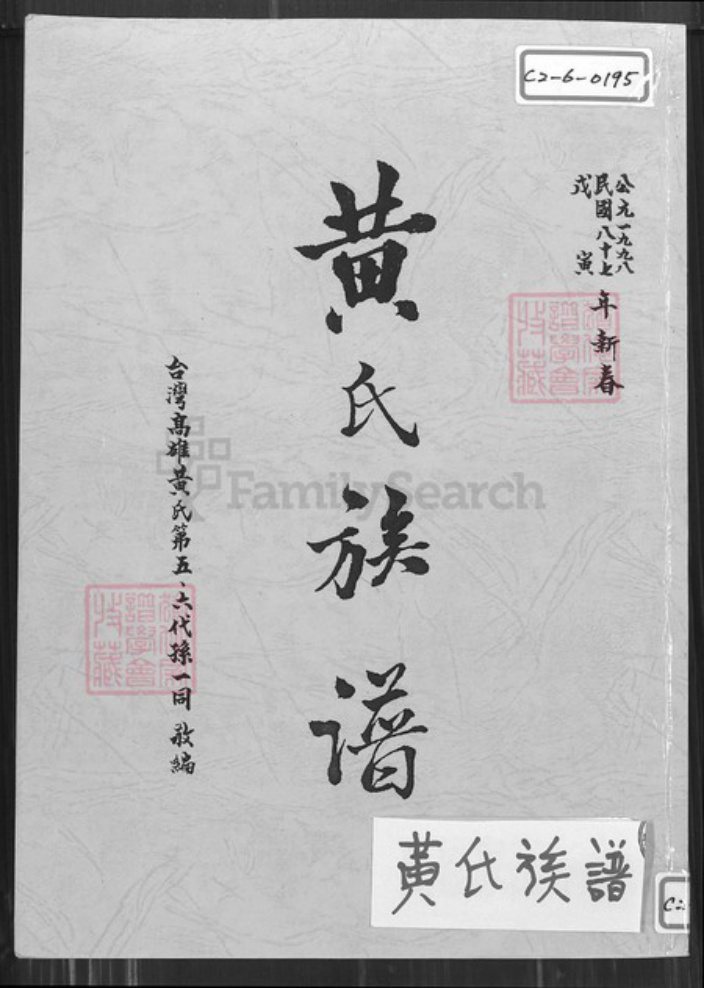 C2-6-0195
公元一九九八
民國八十七
戊寅
年新春
黃氏族譜
台灣高雄黃氏第五、六代孫一同 敬編
FamilySearch
譜學會
收藏
譜學會
收藏
黃氏族譜
C2